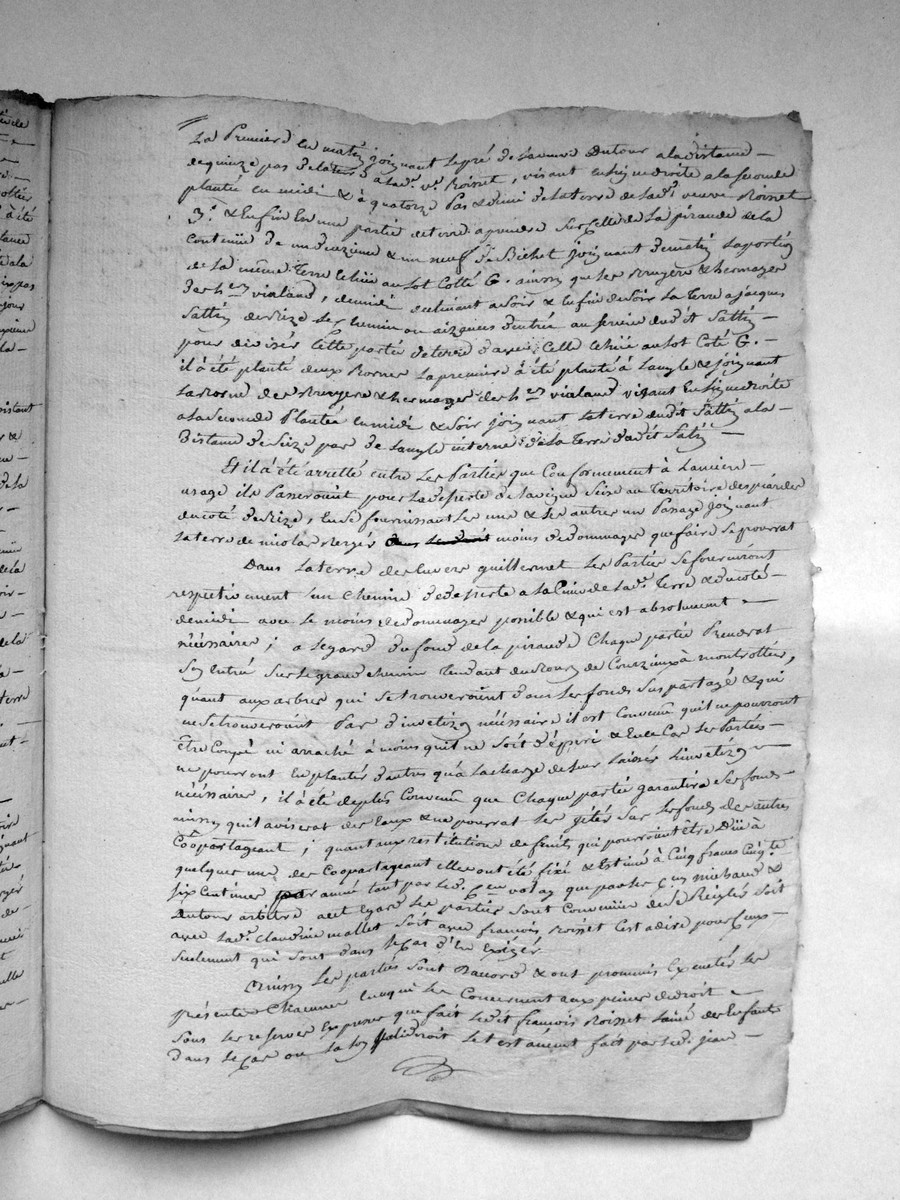 La Premiere en matin joignant le pré de la Dutour a la distance
de quinze pas de la terre a lad.e v.e Roisset, visant en ligne droite a la seconde
plantée en midi & à quatorze Pas & demi de la terre de lad.e veuve Roisset
3.e & Enfin En une partie de terre a prendre sur celle de La piraude de la
Contenüe de un & un neuf de Bichet joignant de matin la portion
de la même Terre Echüe au Lot Cotté G. ainsy que les Bruyere & hermages
des h.ers vialand, de midi declinant a soir & Enfin de soir La Terre a jacques
Sattin de Bize les chemin ou aizances d'entrée au service dudit Sattin
pour diviser Cette partie de terre d'avec Celle Echüe au Lot Coté G.
il a été planté deux Bornes La premiere a été planté à L'angle & joignant
La Borne des Bruyere & hermages des h.ers vialand visant En ligne droite
a la seconde Plantée en midi & Soir joignant La terre dudit Sattin a la
Distance de Seize pas de L'angle interne de La Terre dudit Satin
Et il a été arretté entre Les Parties que Conformement à L'ancien
usage ils Passeroint pour la deserte de la vigne Seise au Territoire des
du coté de Bize, En se fournissant Les uns & Les autres un Passage joignant
La terre de nicolas Berger moins de dommages que faire se pourrat
Dans La terre des Envers guillermet Les Parties se fourniront
respectivement un Chemin de deserte a la Cime de lad.e Terre & du coté
de midi avec le moins de dommages possible & qui est absolument
nécessaire ; a L'egard du fond de la piraude Chaque partie Prendrat
Son Entrée Sur Le grand chemin Tendant du Bourg de à montrottier,
quant aux arbres qui Se trouveroint dans Les fonds Sus partagé & qui
ne Se trouveroint Pas d'invetizon nécéssaire il est Convenu qu'il ne pourront
être Coupé ni arraché à moins qu'il ne Soit & En ce Cas Les Parties
ne pourront En planter d'autres qu'à la charge de Leur Laisser L'invetizon
nécéssaire, il a été de plus Convenu que Chaque partie garantira Ses fonds
ainsy qu'il aviserat des Eaux & ne pourrat Les jeter Sur Les fonds des autres
Coopartageant ; quant aux restitutions de fruits qui pourroint être Düe à
quelques uns des Coopartageant elles ont été fixé & Estimé à Cinq francs Cinq te
Six Centimes par année tant par led. C.en vollay que par Les C.en michaud &
Dutour arbitre a cet Egard Les parties Sont Convenües de Se Regler Soit
avec lad.e Claudine mallet Soit avec francois Roisset C'est a dire pour Ceux
Seulement qui Sont dans le Cas d'En Exiger
Ainsy Les parties Sont D'accord & ont promis Executer Les
Présentes Chacune En ce qui les Concernent aux peines de droit
Sous Les reserves Expresses que fait Ledit francois Roisset L'ainé des Enfants
dans le Cas ou la Loy le testament fait par led. jean